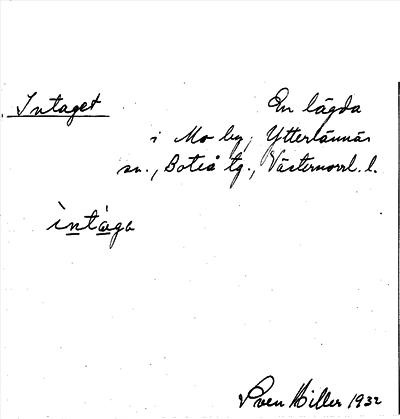 Intaget En lägda
i Mo by, Ytterlännäs
sn., Boteå tg., Västernorrl. l.
ìntàga
Sven Hiller 1932